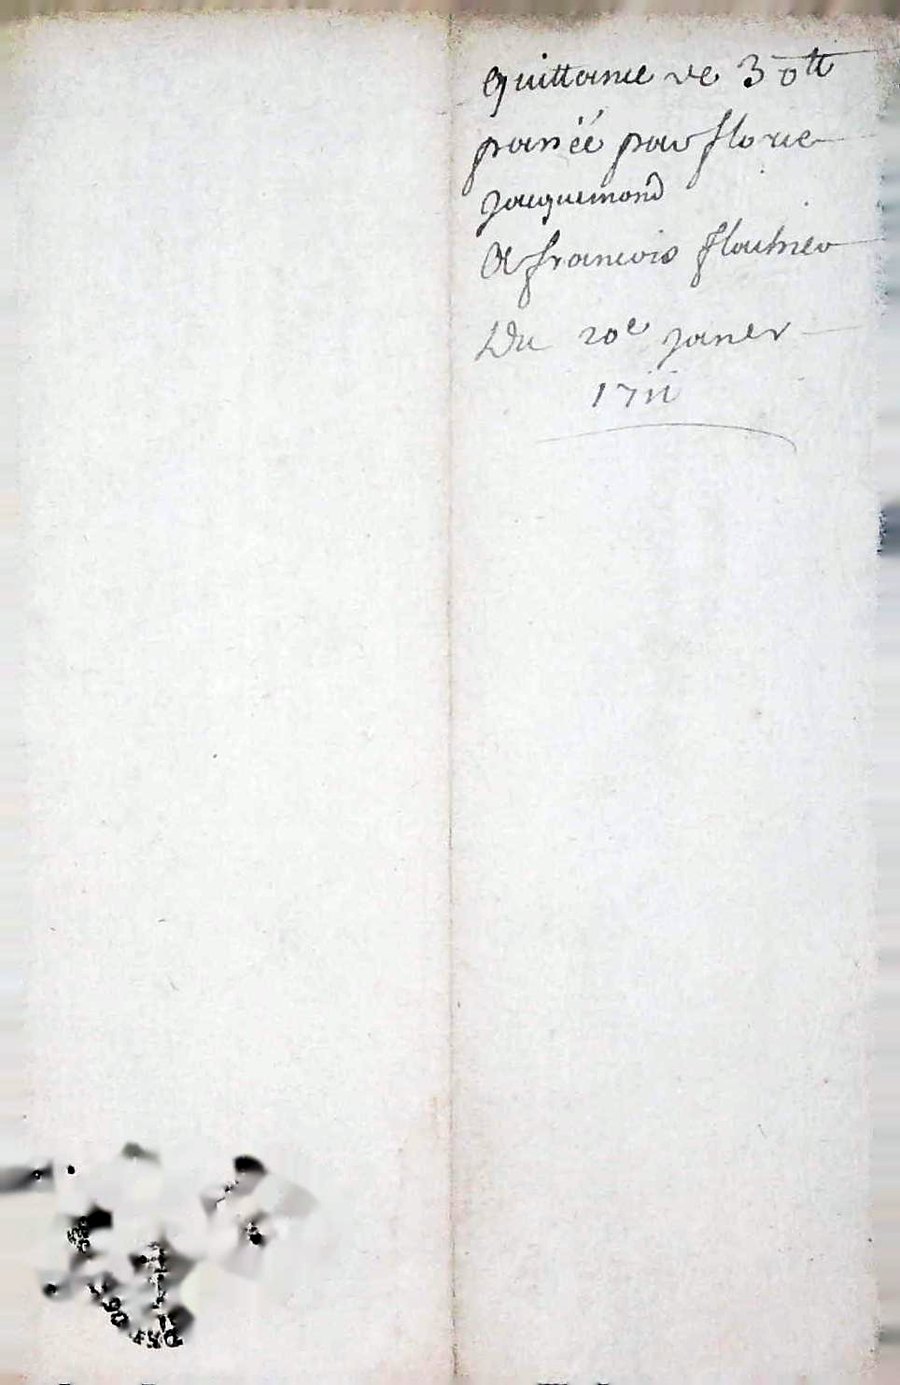 Quittance de 30tt
passéé par florie
Jacquemond
A françois flachier
Du 20e janer
1711